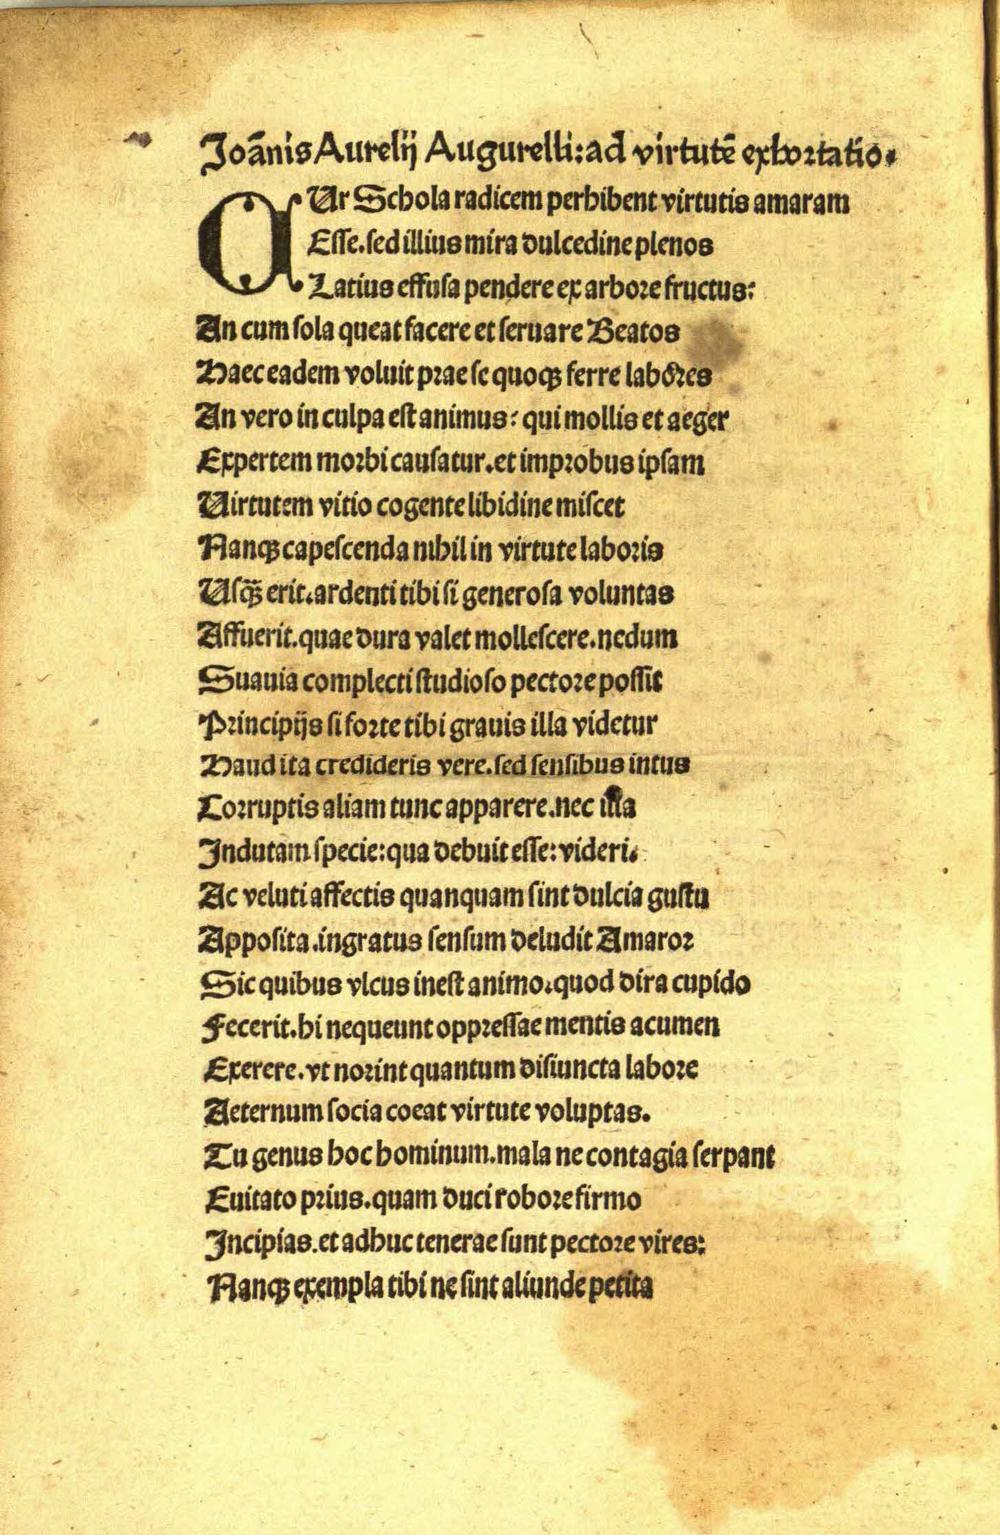 Joãnis Aurelij Augurelli: ad virtutẽ exhortatio.
CUr Schola radicem perhibent virtutis amaram
Esse. sed illius mira dulcedine plenos
Latius effusa pendere ex arbore fructus:
An cum sola queat facere et seruare Beatos
Haec eadem voluit prae se quoqꝫ ferre labores
An vero in culpa est animus: qui mollis et aeger
Expertem morbi causatur. et improbus ipsam
Uirtutem vitio cogente libidine miscet
Nanqꝫ capescenda nihil in virtute laboris
Usq̃ꝫ erit. ardenti tibi si generosa voluntas
Affuerit. quae dura valet mollescere. nedum
Suauia complecti studioso pectore possit
Principijs si forte tibi grauis illa videtur
Haud ita credideris vere. sed sensibus intus
Corruptis aliam tunc apparere. nec illa
Indutam specie: qua debuit esse: videri.
Ac veluti affectis quanquam sint dulcia gustu
Apposita. ingratus sensum deludit Amaror
Sic quibus vlcus inest animo. quod dira cupido
Fecerit. hi nequeunt oppressae mentis acumen
Exerere. vt norint quantum disiuncta labore
Aeternum socia coeat virtute voluptas.
Tu genus hoc hominum. mala ne contagia serpant
Euitato prius. quam duci robore firmo
Incipias. et adhuc tenerae sunt pectore vires:
Nanqꝫ exempla tibi ne sint aliunde petita